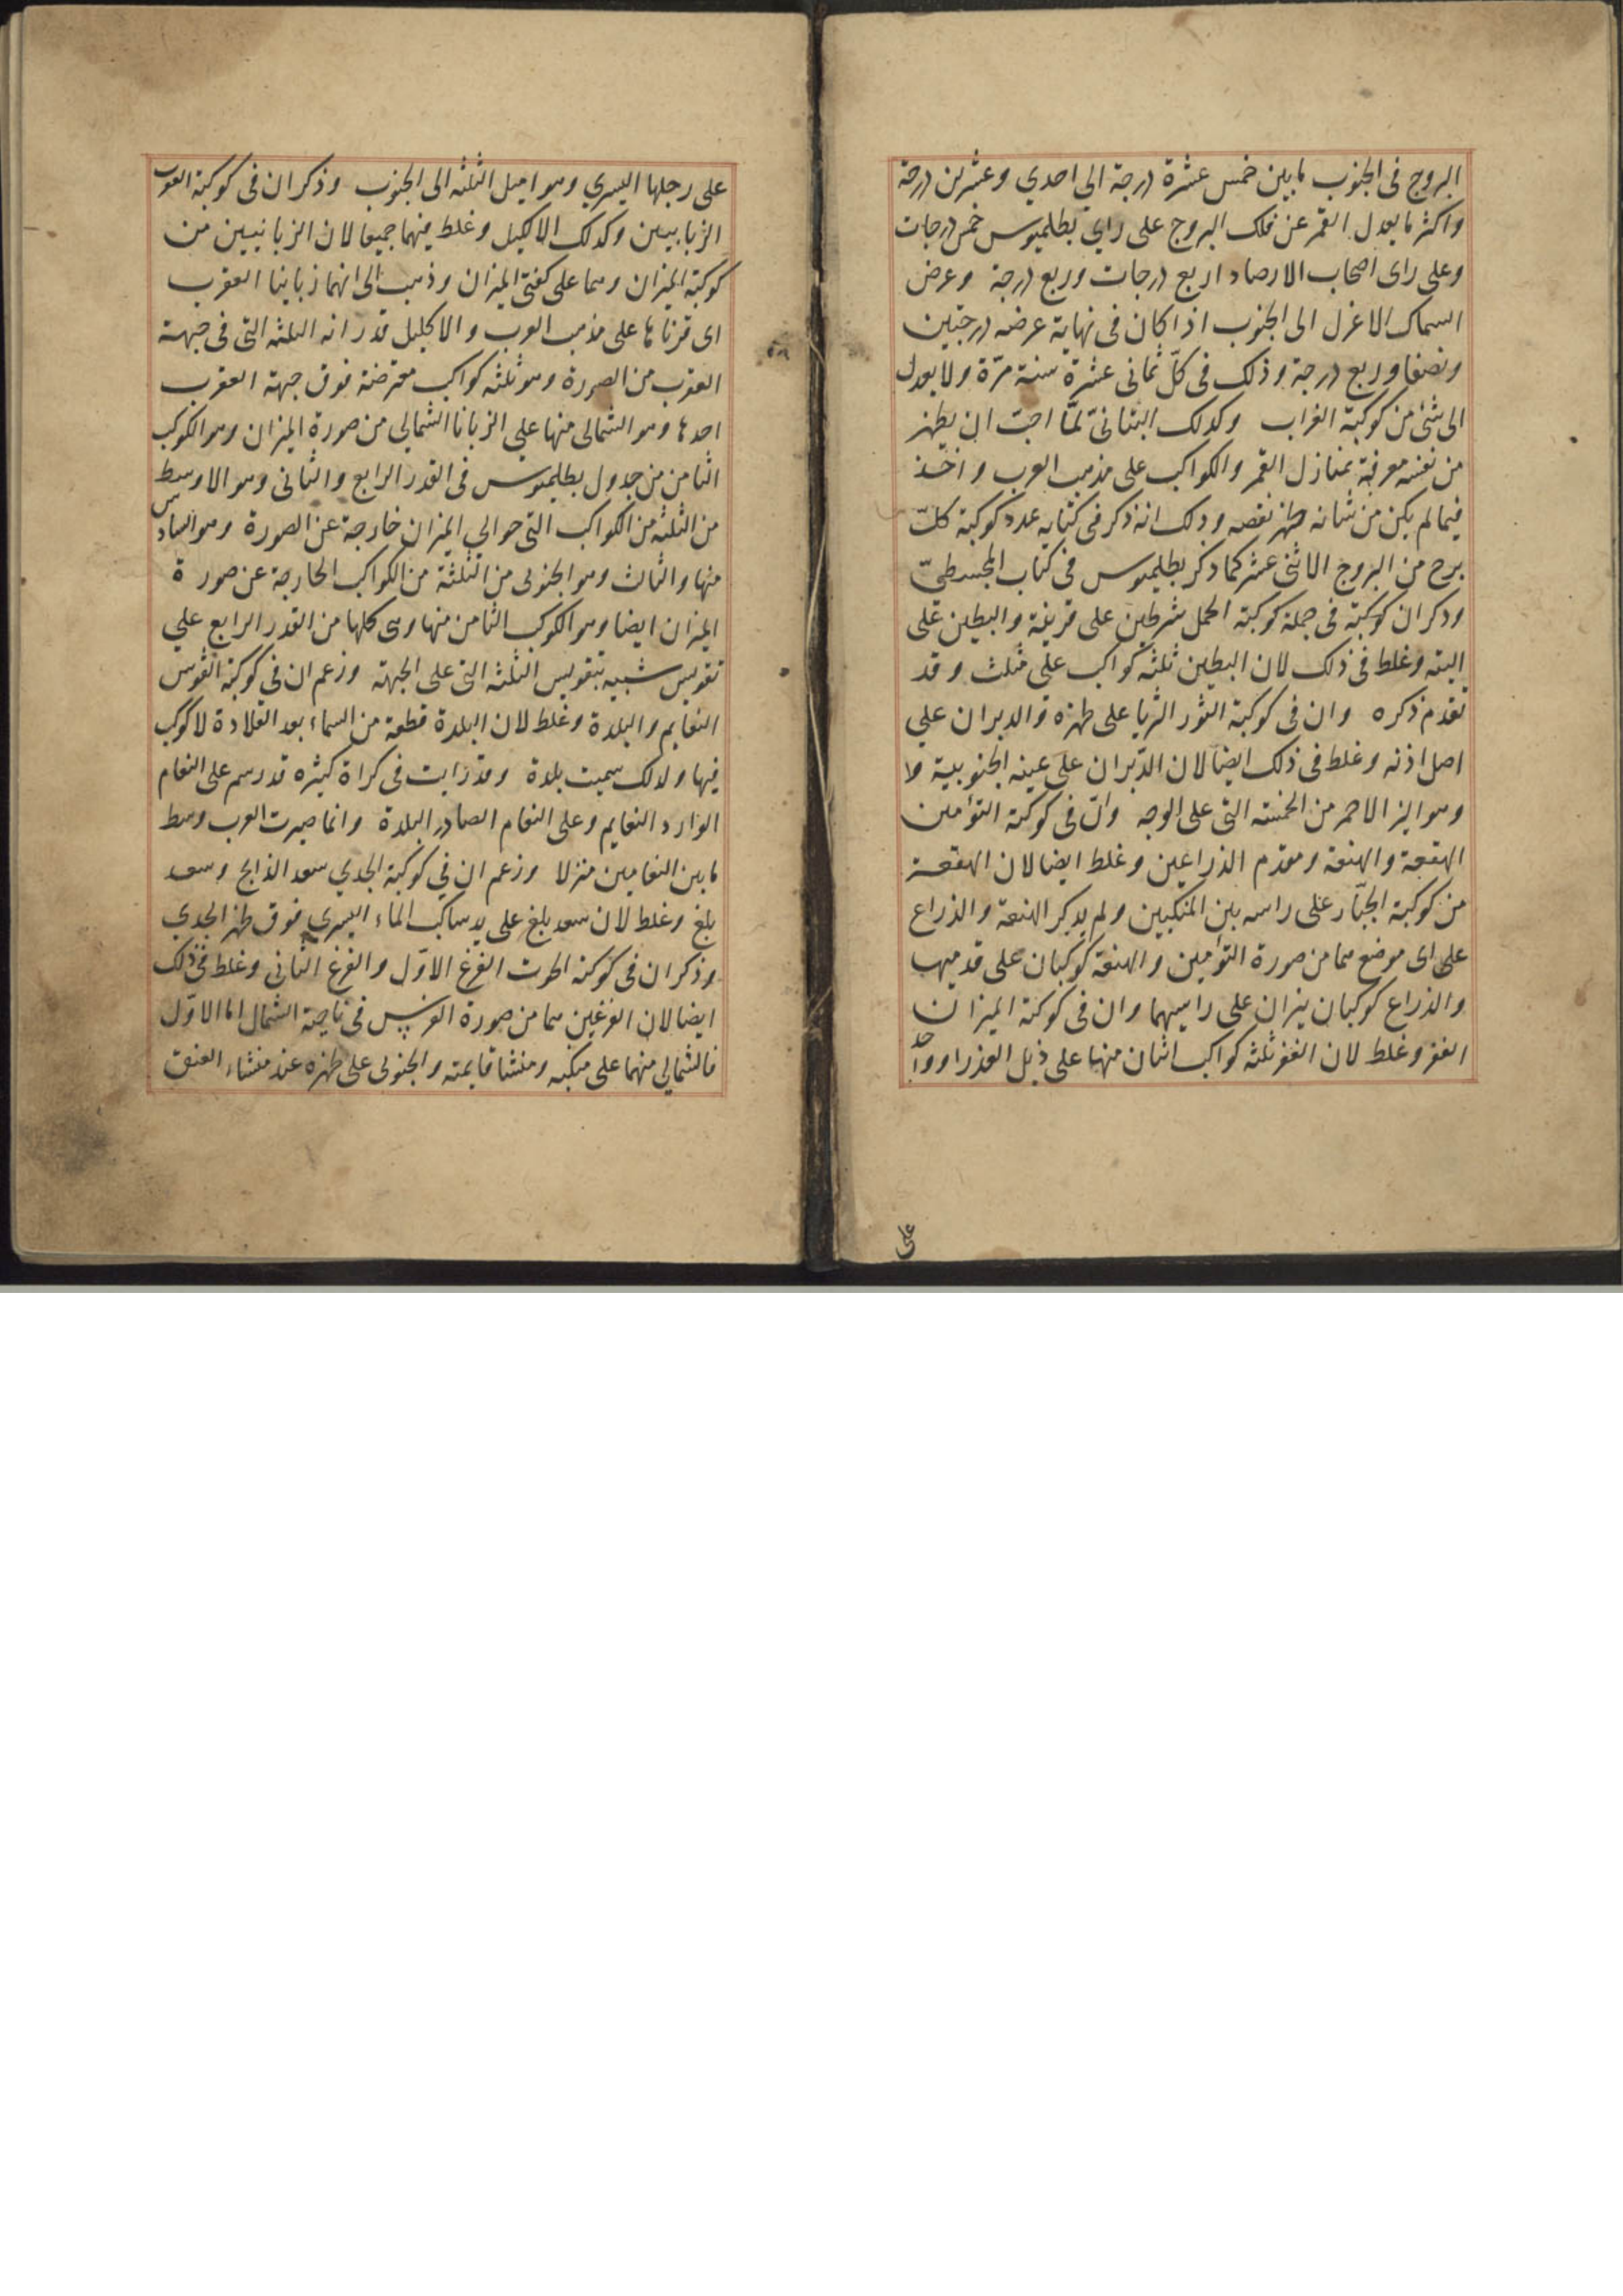 البروج فى الجنوب ما بين خمس عشرة درجة الي احدي وعشرين درجة
واكثر ما يعدل القمر عن فلك البروج على راي بطلميوس خمس درجات
وعلى راى اصحاب الارصاد اربع درجات وربع درجة وعرض
السماك الاعزل الى الجنوب اذا كان فى نهاية عرضه درجتين
ونصفا وربع درجة وذلك فى كلّ ثمانى عشرة سنة مرّة ولا يعدل
الى شئ من كوكبة الغراب وكدلك البتانىّ لمّا احبّ ان يظهر
من نفسه معرفة بمنازل القمر والكواكب على مذهب العرب واخذ
فيما لم يكن من شانه ظهر نقصه ودلك انه ذكر فى كتابه عدد كوكبة كلّ
برج من البروج الاثنى عشر كما دكر بطلميوس فى كتاب المجسطىّ
ودكر ان كوكبة فى جملة كوكبة الحمل شرطين على قرنيه والبطين على
اليته وغلط فى ذلك لان البطين ثلثه كواكب على مثلث وقد
تقدم ذكره وان فى كوكبة الثور الثريا على ظهره والدبران علي
اصل اذنه وغلط فى ذلك ايضا لان الدّبران على عينه الجنوبية
وهو النير الاحمر من الخمسه التى على الوجه وانّ فى كوكبة التوامين
الهقعة والهنعة ومقدم الذراعين وغلط ايضا لان الهقعة
من كوكبة الجبّار على راسه بين المنكبين ولم يدكر الهنعة والذراع
على اى موضع هما من صورة التوأمين والهنعة كوكبان على قدميهما
والذراع كوكبان نيران على راسيهما وان فى كوكبة الميزان
الغفر وغلط لان الغفر ثلثه كواكب اثنان منها على ذيل العذرا وواحد
على
على رجلها اليسري وهو اميل الثلثه الى الجنوب وذكر ان فى كوكبة العقرب
الزبانيين وكدلك الاكليل وغلط فيهما جميعا لان الزبانيين من
كوكبة الميزان وهما على كفتى الميزان وذهب الى انهما زبانيا العقرب
اى قرناها على مذهب العرب والاكليل قدر انه الثلثه التى فى جبهة
العقرب من الصورة وهو ثلثه كواكب معترضة فوق جبهة العقرب
احدها وهو الشمالى منها علي الزبانا الشمالي من صورة الميزان وهو الكوكب
الثامن من جدول بطلميوس فى القدر الرابع والثانى وهو الاوسط
من الثلثه من الكواكب التى حوالي الميزان خارجة عن الصورة وهو السادس
منها والثالث وهو الجنوبى من الثلثة من الكواكب الخارجة عن صورة
الميزان ايضا وهو الكوكب الثامن منها وهى كلها من القدر الرابع علي
تقويس شبيه بتقويس الثلثه التى على الجبهة وزعم ان فى كوكبة القوس
النعايم والبلدة وغلط لان البلدة قطعة من السماء بعد القلادة لا كوكب
فيها ولدلك سميت بلدة وقد رايت فى كراة كثيره قد رسم على النعام
الوارد النعايم وعلى النعام الصادر البلدة وانما صيرت العرب وسط
ما بين النعامين منزلا وزعم ان في كوكبة الجدي سعد الذابح وسعد
بلع وغلط لان سعد بلع على يد ساكب الماء اليسري فوق ظهر الجدي
وذكر ان فى كوكبة الحوت الفرغ الاوّل والفرغ الثانى وغلط فى ذلك
ايضا لان الفرغين هما من صورة الفرس فى ناحية الشمال اما الاوّل
فالشمالي منهما على منكبه ومنشا قايمته والجنوبى على ظهره عند منشاء العنق